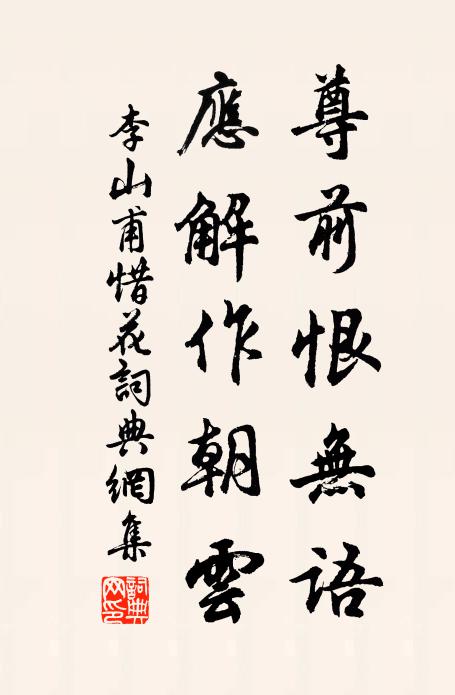 尊前恨無語
應解作朝雲
李山甫惜花詞典網集
詞典網印